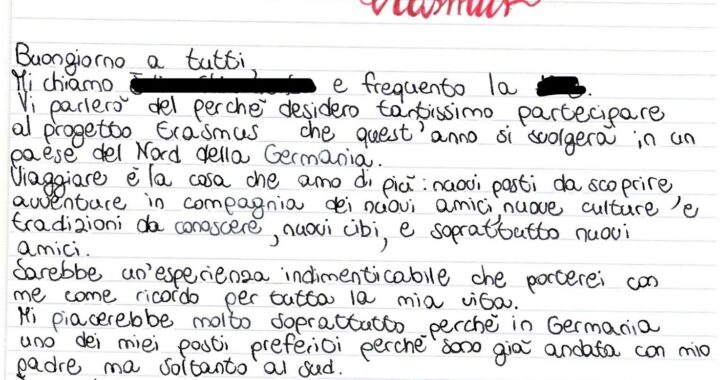 Erasmus
Buongiorno a tutti,
Mi chiamo e frequento la .
Vi parlerò del perchè desidero tantissimo partecipare
al progetto Erasmus che quest'anno si svolgerà in un
paese del Nord della Germania.
Viaggiare è la cosa che amo di più: nuovi posti da scoprire
avventure in compagnia dei nuovi amici, nuove culture e
tradizioni da conoscere, nuovi cibi, e soprattutto nuovi
amici.
Sarebbe un'esperienza indimenticabile che porterei con
me come ricordo per tutta la mia vita.
Mi piacerebbe molto soprattutto perchè in Germania
uno dei miei posti preferiti perchè sono già andata con mio
padre ma soltanto al sud.